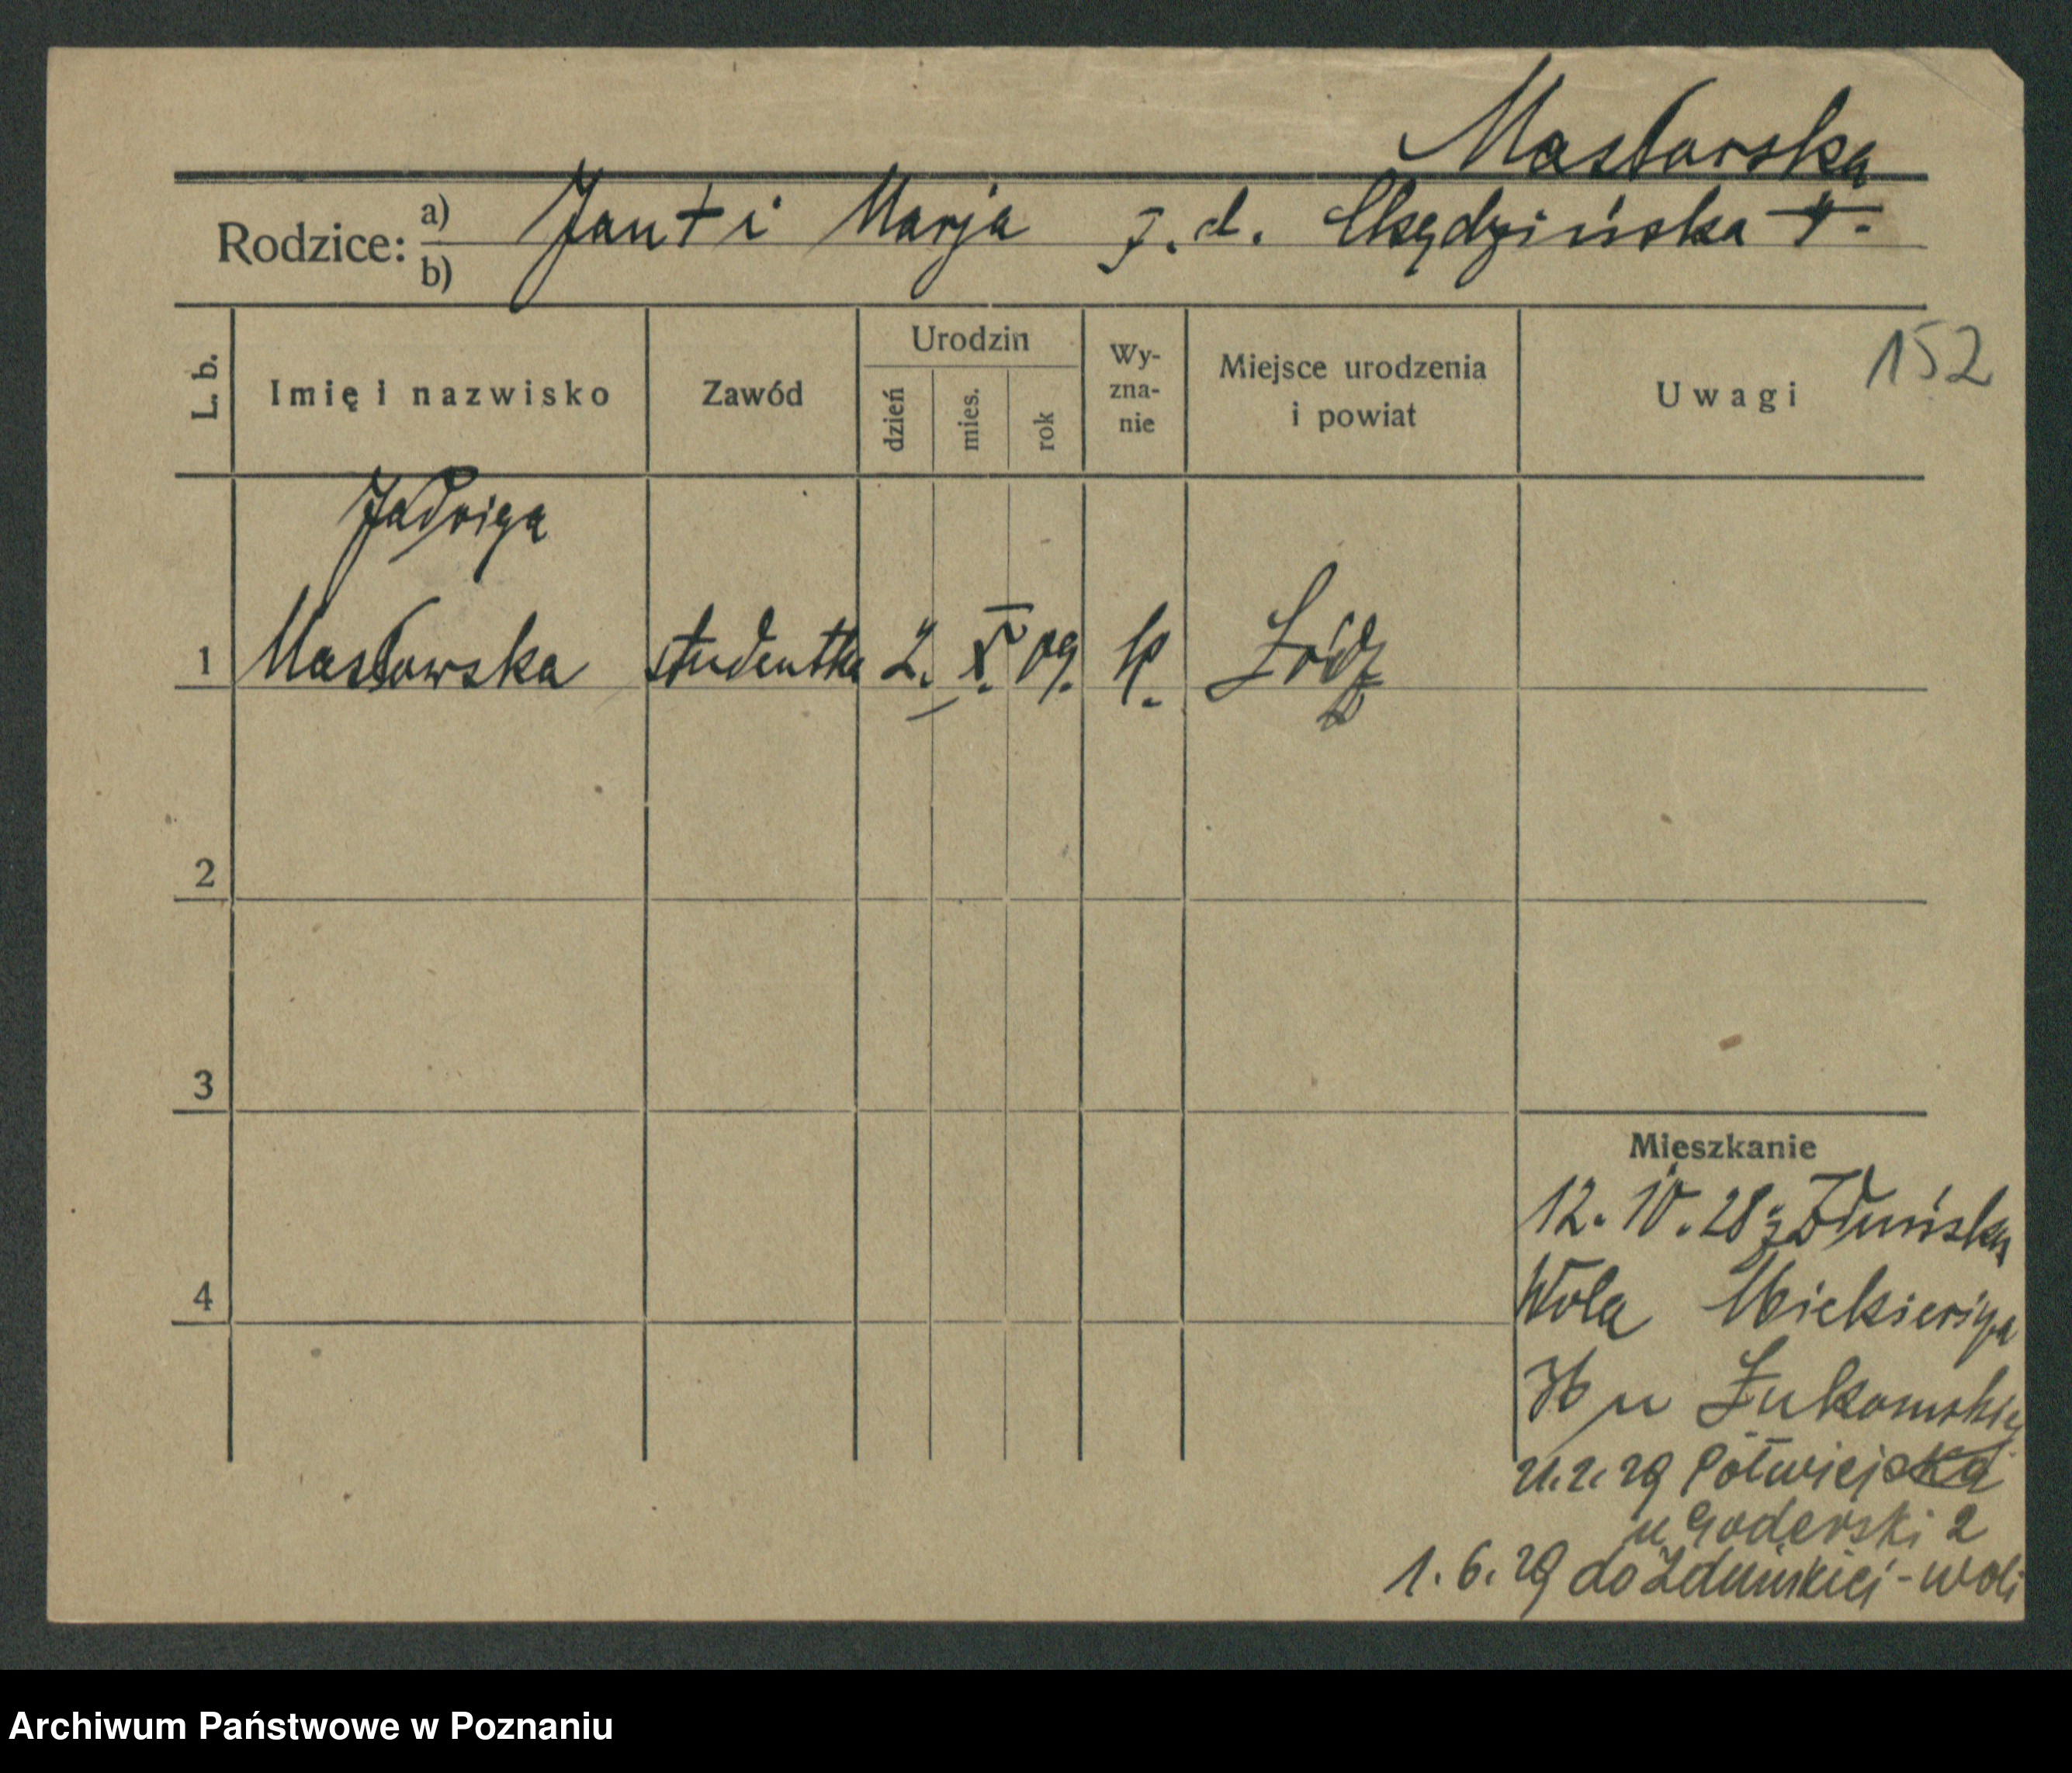 Masłowska
Rodzice: a) Jan + i Marja z. d. Chędzyńska +.
b)
152
L. b. Imię i nazwisko Zawód Urodzin dzień mies. rok Wy-zna-nie Miejsce urodzenia i powiat Uwagi
Jadwiga
1 Masłowska studentka 2. X. 09. k. Łódź
2
3
4
Mieszkanie
12. 10. 28 z Zduńska
Wola
36 u Żukowskiej
21.2.29 Półwiejska
u Goderski 2
1. 6. 29 do Zduńskiej-woli
Archiwum Państwowe w Poznaniu